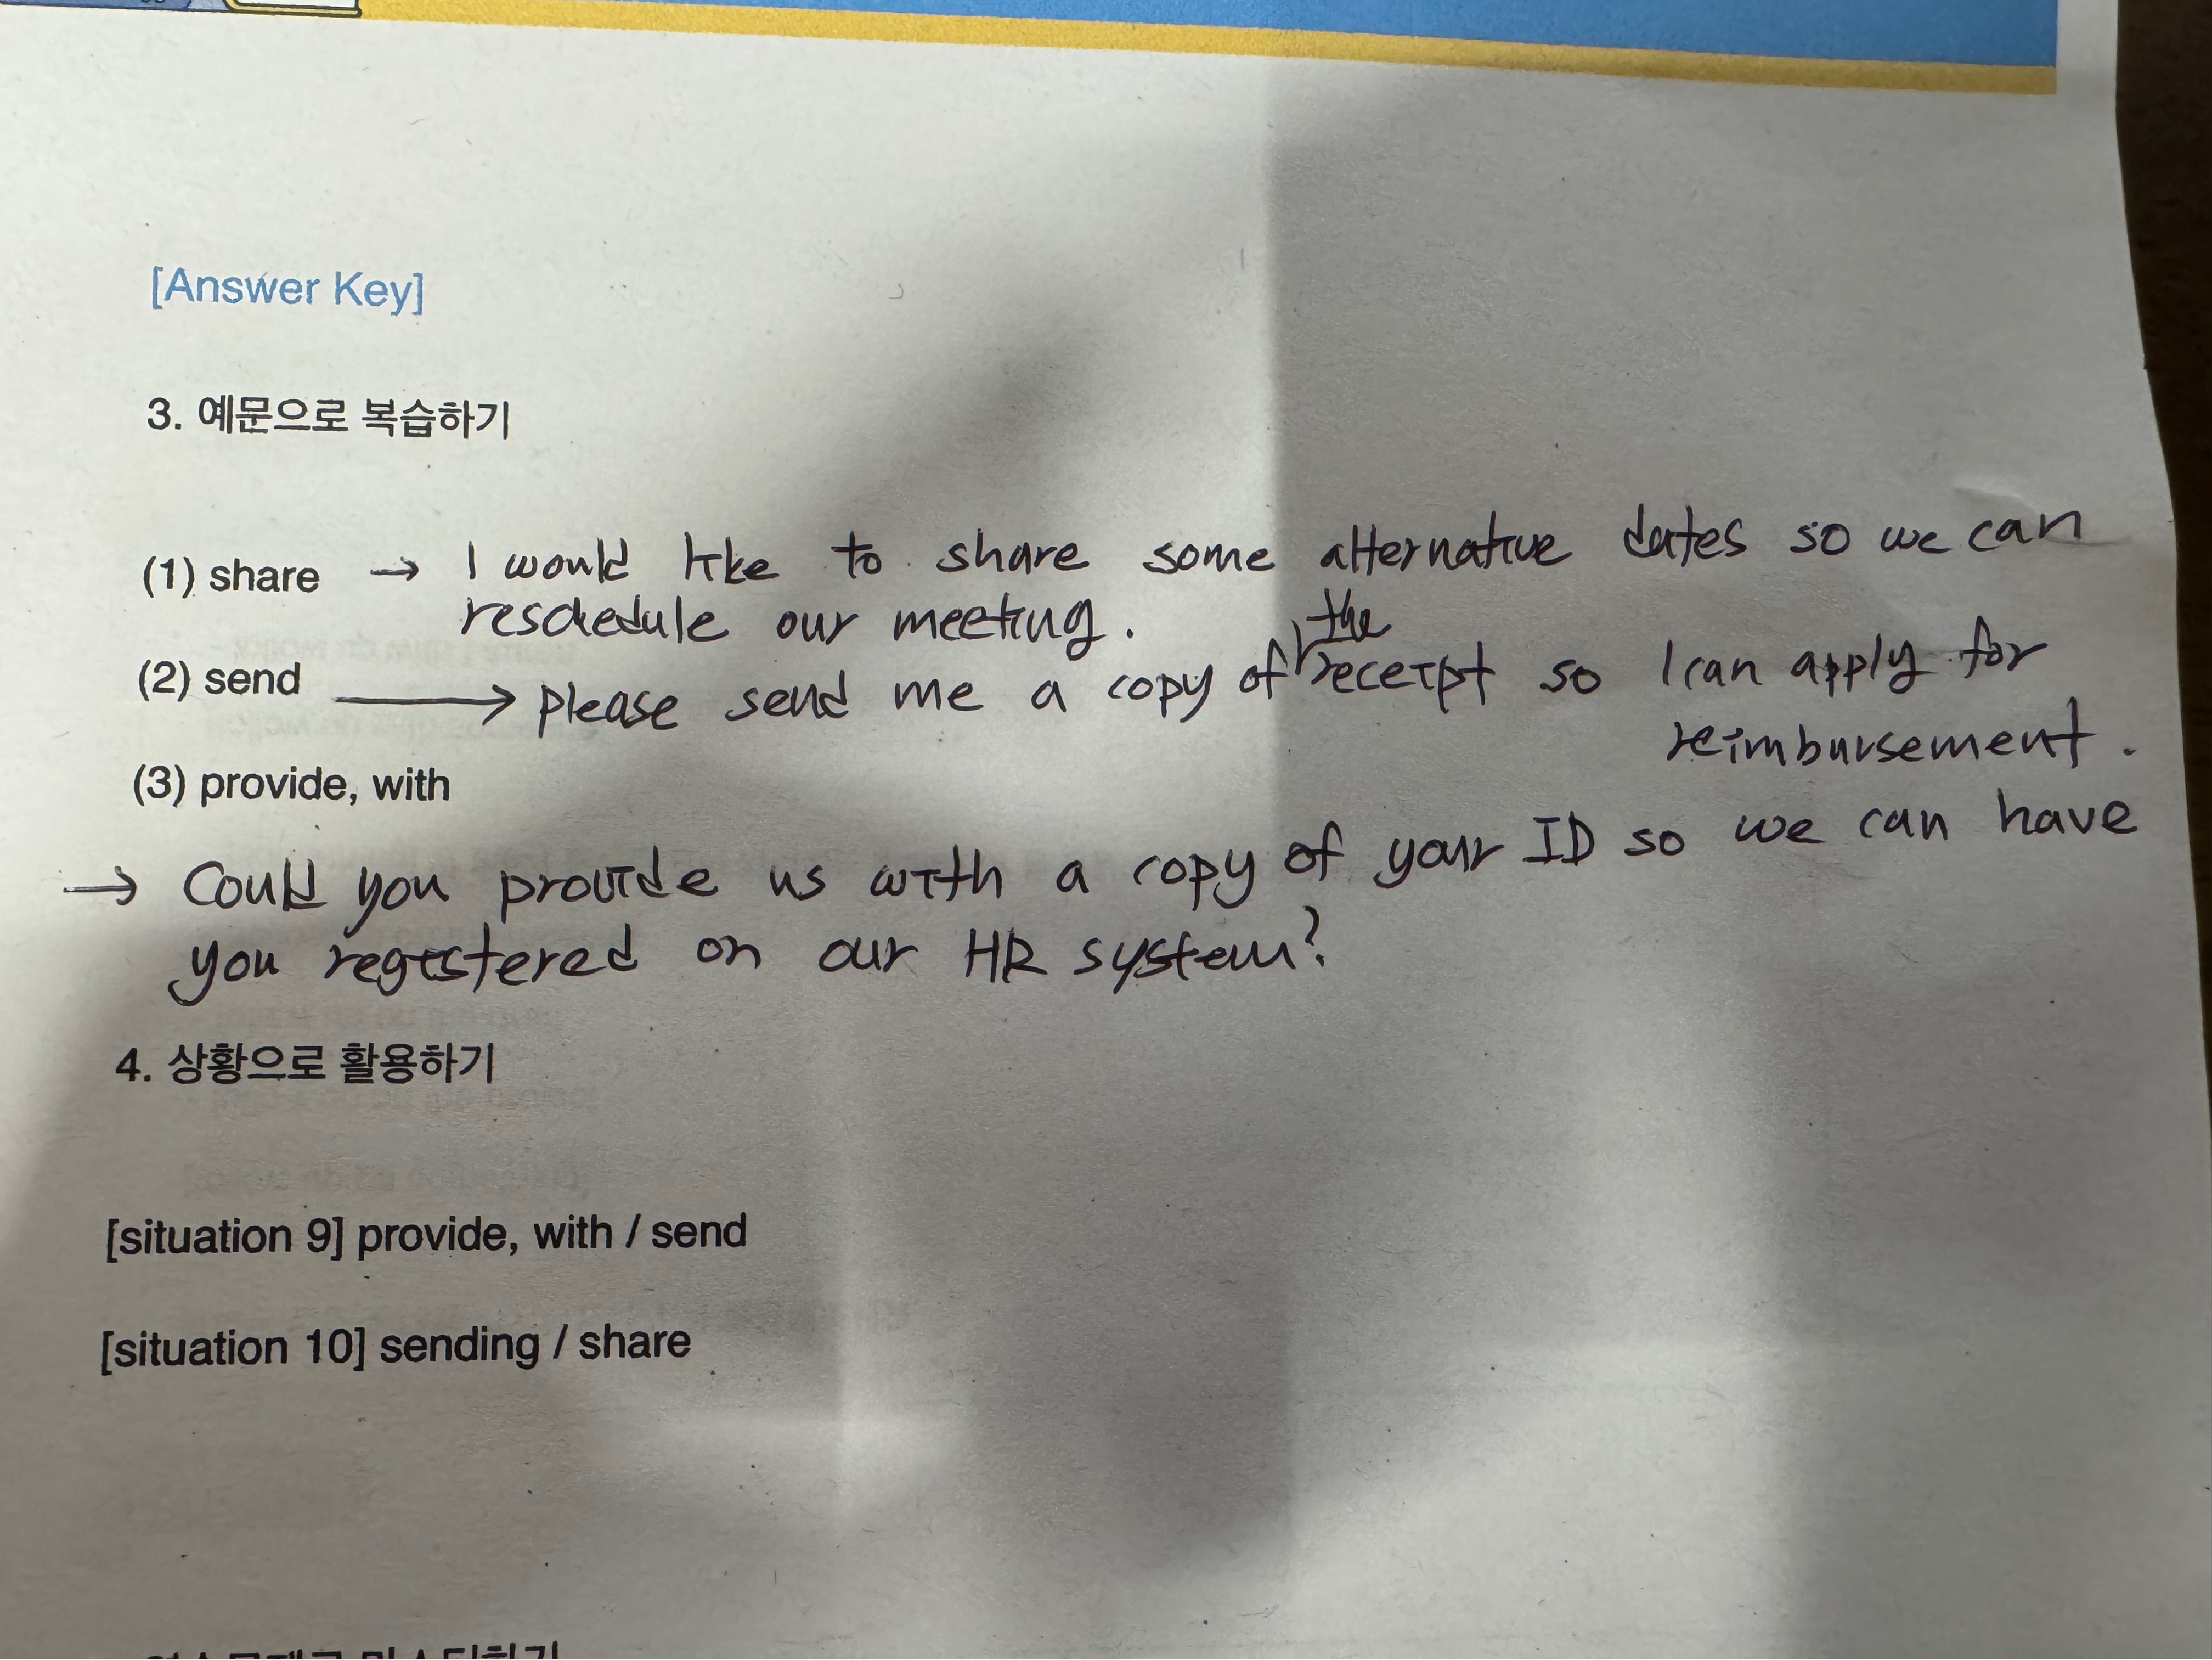 [Answer Key]
3. 예문으로 복습하기
(1) share → I would like to share some alternative dates so we can
reschedule our meeting.
the
(2) send → please send me a copy of receipt so I can apply for
reimbursement.
(3) provide, with
→ Could you provide us with a copy of your ID so we can have
you registered on our HR system?
4. 상황으로 활용하기
[situation 9] provide, with / send
[situation 10] sending / share